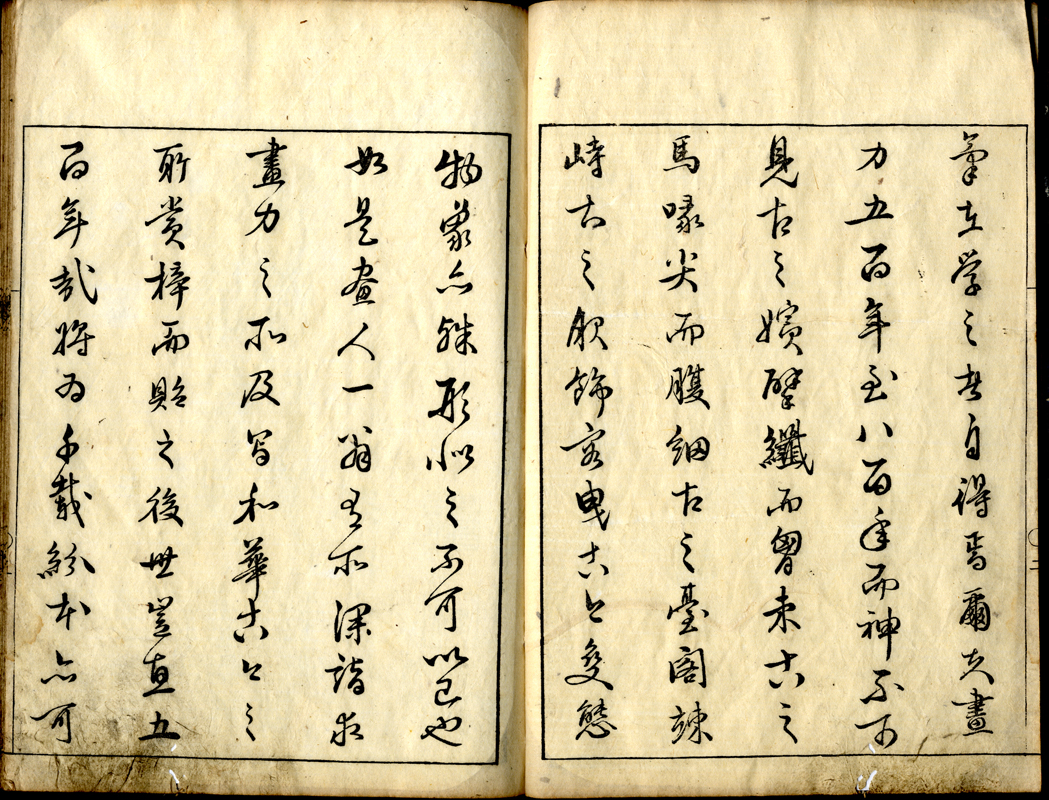 在学之者自得焉爾夫畫
力五百年至八百年而神不可
見古之嬪擘纖而胸束古之
馬喙尖而腹細古之臺閣竦
峙古之服飾容曳古今變態
物象亦殊形似之不可以已也
如是畫人一翁有所深詣
畫力之所及寫和華古今之
所賞梓而貽之後世豈直五
百年哉将為千載粉本亦可